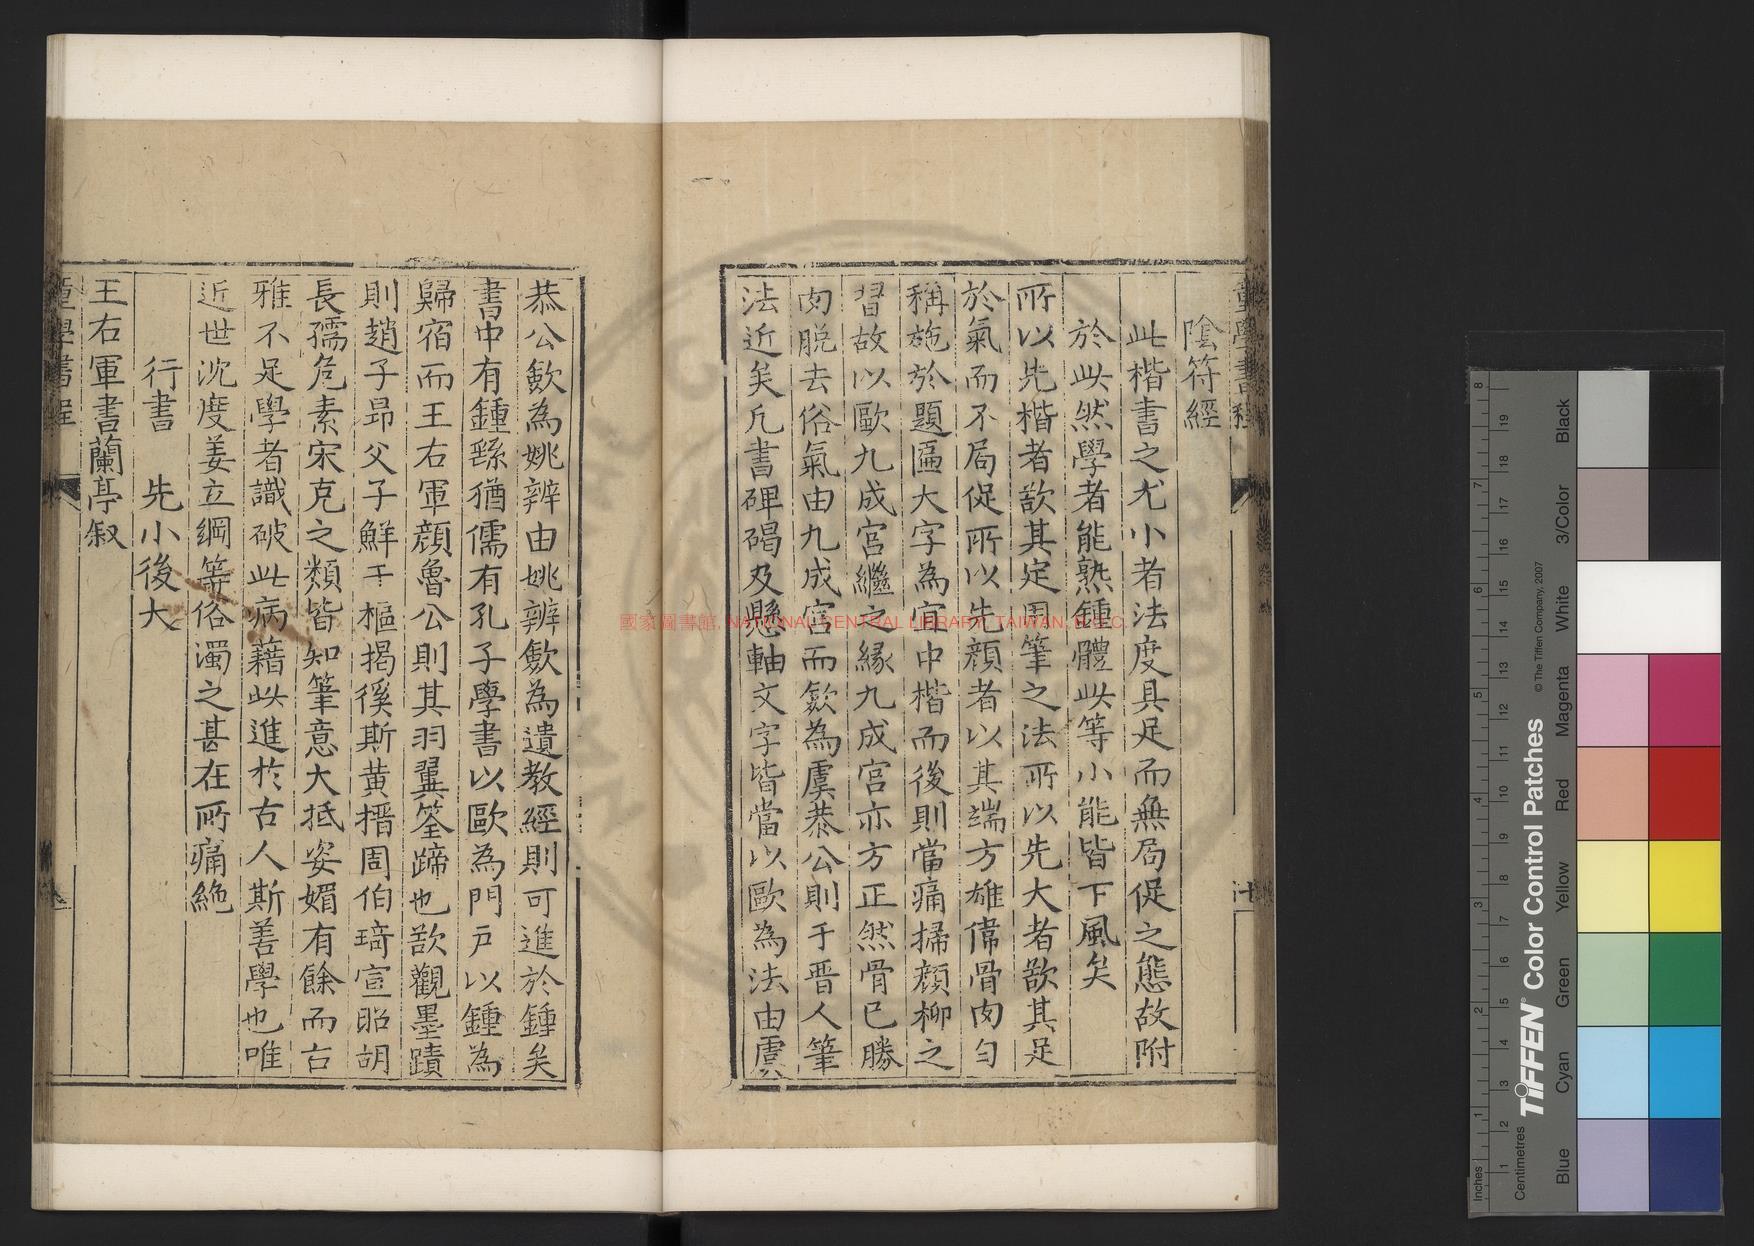 童學書程
陰符經
此楷書之尤小者法度具足而無局促之態故附
於此然學者能熟鍾體此等小能皆下風矣
所以先楷者欲其定用筆之法所以先大者欲其足
於氣而不局促所以先顔者以其端方雄偉骨肉勻
稱施於題匾大字為宜中楷而後則當痛掃顔柳之
習故以歐九成宮繼之緣九成宮亦方正然骨已勝
肉脱去俗氣由九成宮而歛為虞恭公則于晋人筆
法近矣凡書碑碣及懸軸文字皆當以歐為法由虞
恭公歛為姚辨由姚辨歛為遺教經則可進於鍾矣
書中有鍾繇猶儒有孔子學書以歐為門戸以鍾為
歸宿而王右軍顔魯公則其羽翼筌蹄也欲觀墨蹟
則趙子昂父子鮮于樞揭徯斯黄搢周伯琦宣昭胡
長孺危素宋克之類皆知筆意大抵姿媚有餘而古
雅不足學者識破此病藉此進於古人斯善學也唯
近世沈度姜立綱等俗濁之甚在所痛絶
行書 先小後大
王右軍書蘭亭叙
童學書程
國家圖書館, NATIONAL CENTRAL LIBRARY, TAIWAN, R.O.C.
TIFFEN® Color Control Patches
© The Tiffen Company, 2007
Inches
Centimetres
Blue
Cyan
Green
Yellow
Red
Magenta
White
3/Color
Black